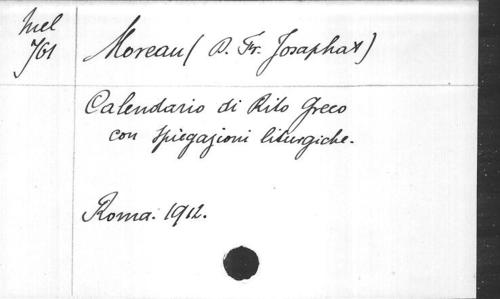 Mel
761
Moreau (P. Fr. Josaphat)
Calendario di Rito Greco
con spiegazioni liturgiche.
Roma. 1912.